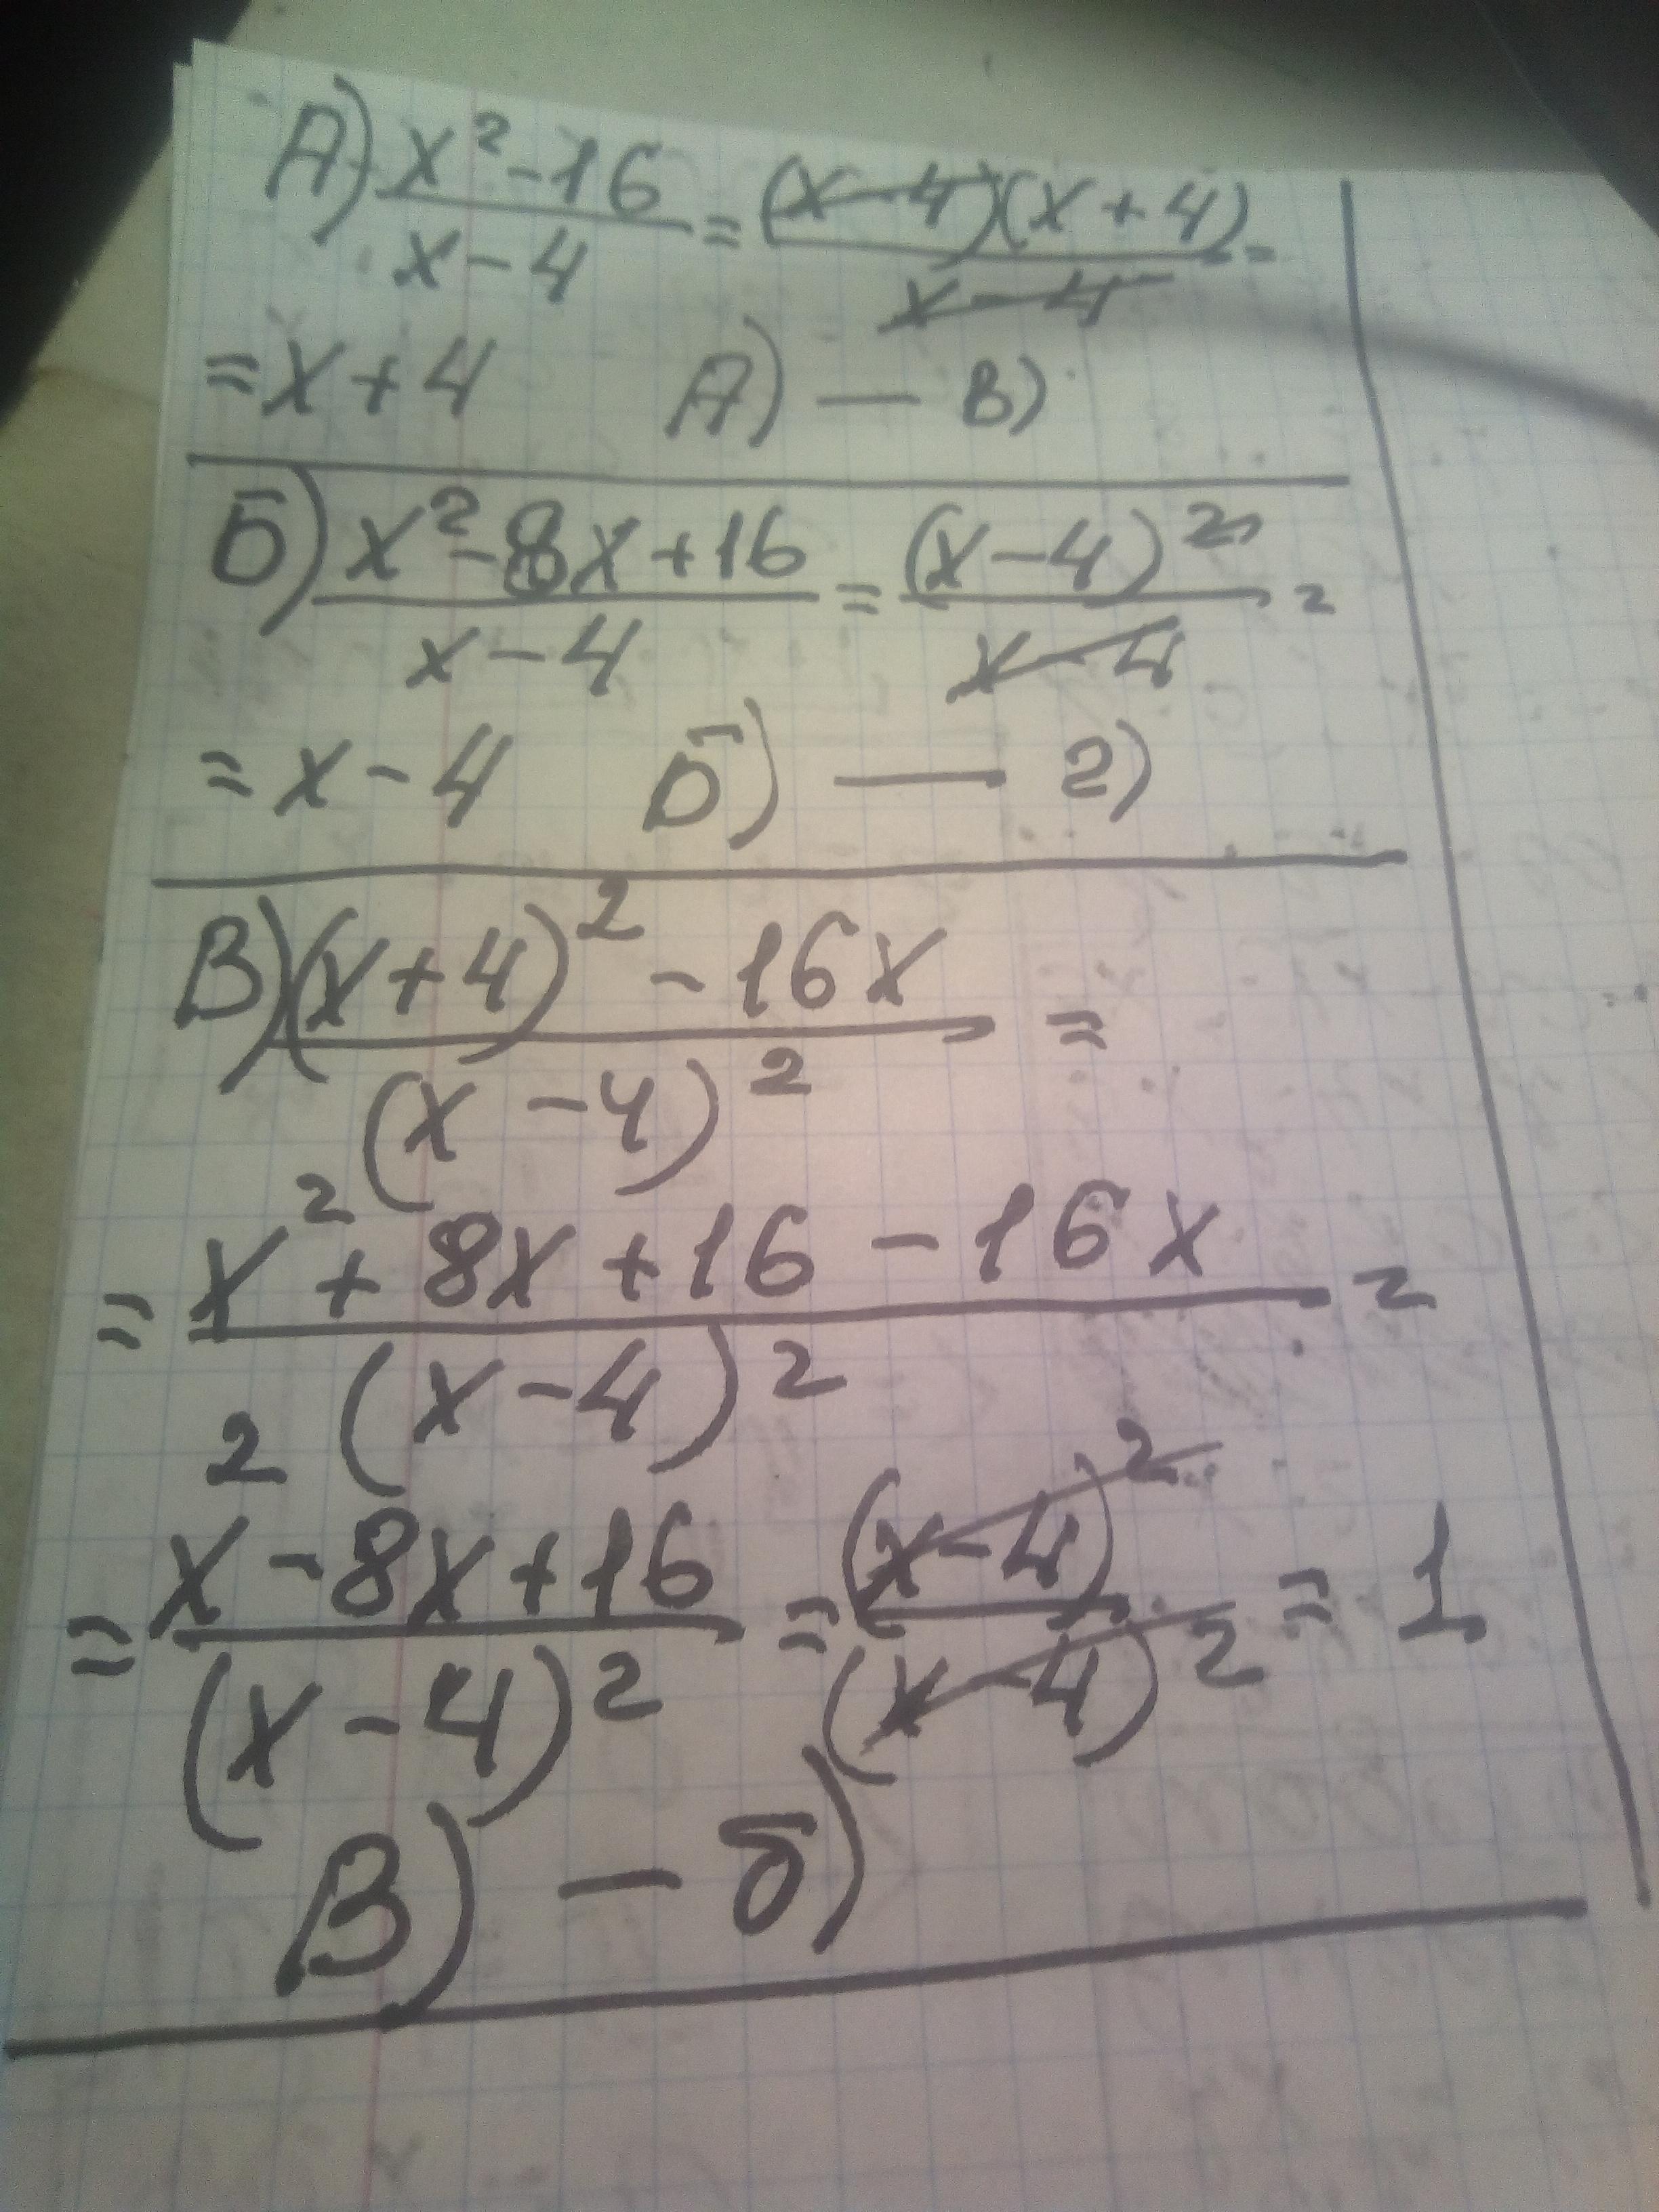 А) x² - 16 / x - 4 = (x - 4)(x + 4) / x - 4 =
= x + 4 А) — в)
Б) x² - 8x + 16 / x - 4 = (x - 4)² / x - 4 =
= x - 4 Б) — г)
В) (x + 4)² - 16x / (x - 4)² =
= x² + 8x + 16 - 16x / (x - 4)² =
= x² - 8x + 16 / (x - 4)² = (x - 4)² / (x - 4)² = 1
В) — б)